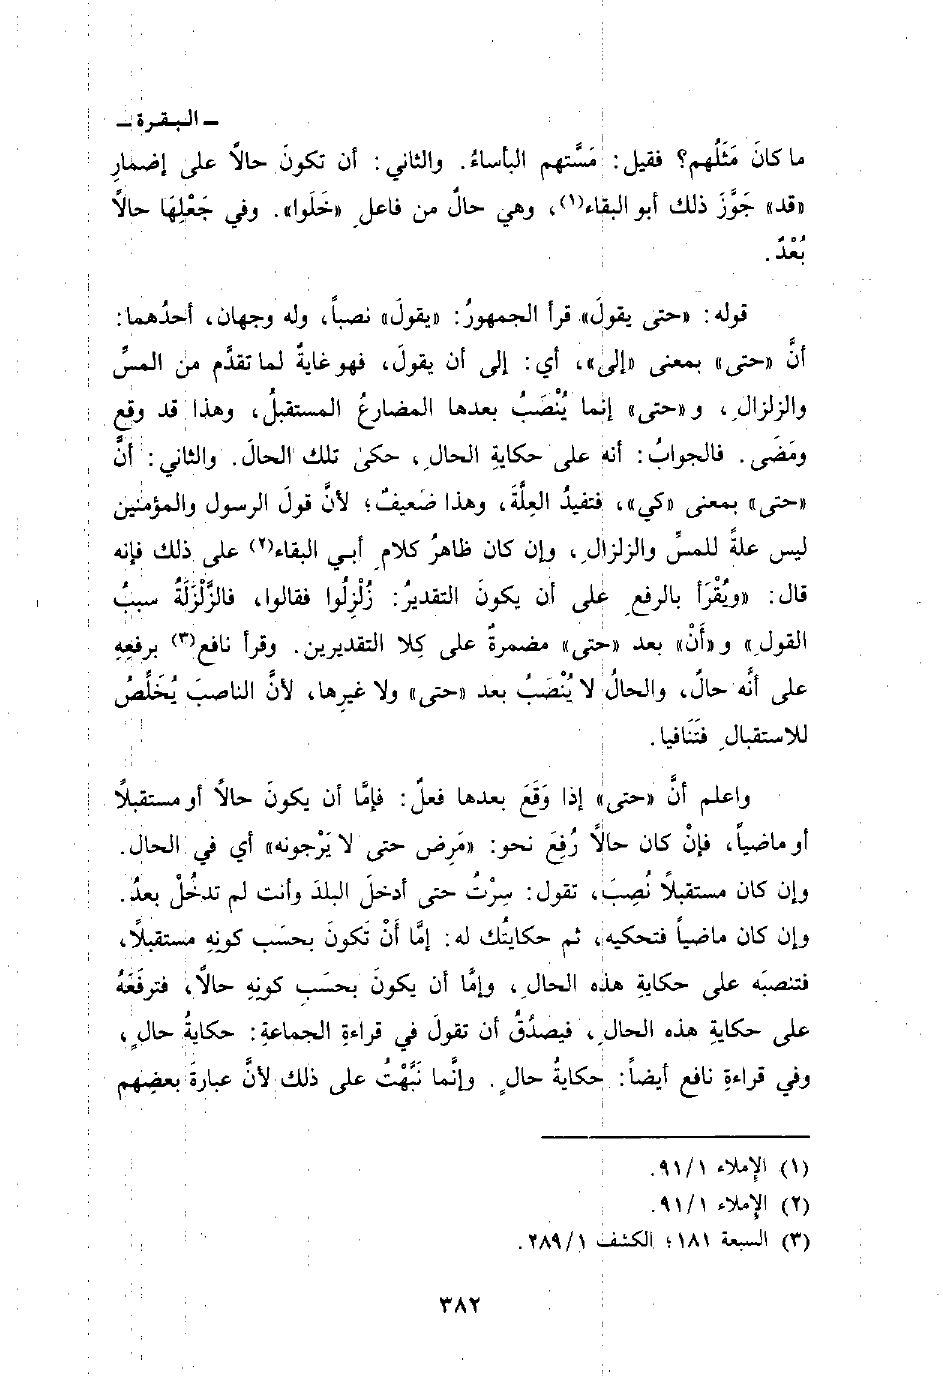 ـ البقرة ـ
ما كانَ مَثَلُهم؟ فقيل: مَسَّتهم البأساءُ. والثاني: أن تكونَ حالاً على إضمارِ
«قد» جَوَّزَ ذلك أبو البقاء(١)، وهي حالٌ من فاعلِ «خَلَوا». وفي جَعْلِهَا حالاً
بُعْدٌ.
قوله: «حتى يقولَ» قرأ الجمهورُ: «يقولَ» نصباً، وله وجهان، أحدُهما:
أنَّ «حتى» بمعنى «إلى»، أي: إلى أن يقولَ، فهو غايةٌ لما تقدَّم من المسِّ
والزلزالِ، و«حتى» إنما يُنْصَبُ بعدها المضارعُ المستقبلُ، وهذا قد وقع
ومَضَى. فالجوابُ: أنه على حكايةِ الحالِ، حكىٰ تلك الحالَ. والثاني: أنَّ
«حتى» بمعنى «كي»، فتفيدُ العِلَّةَ، وهذا ضعيفٌ؛ لأنَّ قولَ الرسول والمؤمنين
ليس علةً للمسِّ والزلزالِ، وإن كان ظاهرُ كلامِ أبي البقاء(٢) على ذلك فإنه
قال: «ويُقْرَأ بالرفعِ على أن يكونَ التقديرُ: زُلْزِلُوا فقالوا، فالزَّلْزَلَةُ سببُ
القولِ» و«أَنْ» بعد «حتى» مضمرةٌ على كِلا التقديرين. وقرأ نافع(٣) برفعِهِ
على أنَّه حالٌ، والحالُ لا يُنْصَبُ بعد «حتى» ولا غيرِها، لأنَّ الناصبَ يُخَلِّصُ
للاستقبالِ فتَنَافيا.
واعلم أنَّ «حتى» إذا وَقَعَ بعدها فعلٌ: فإمَّا أن يكونَ حالاً أو مستقبلاً
أو ماضياً، فإنْ كان حالاً رُفِعَ نحو: «مَرِض حتى لا يَرْجونه» أي في الحال.
وإن كان مستقبلاً نُصِبَ، تقول: سِرْتُ حتى أدخلَ البلدَ وأنت لم تدخُلْ بعدُ.
وإن كان ماضياً فتحكيه، ثم حكايتُك له: إمَّا أَنْ تكونَ بحسَب كونِهِ مستقبلاً،
فتنصبَه على حكايةِ هذه الحالِ، وإمَّا أن يكونَ بحسَبِ كونِهِ حالاً، فترفَعَهُ
على حكايةِ هذه الحالِ، فيصدُقُ أن تقولَ في قراءةِ الجماعةِ: حكايةُ حالٍ،
وفي قراءةِ نافع أيضاً: حكايةُ حالٍ. وإنَّما نَبَّهْتُ على ذلك لأنَّ عبارةَ بعضِهم
(١) الإملاء ٩١/١.
(٢) الإملاء ٩١/١.
(٣) السبعة ١٨١؛ الكشف ٢٨٩/١.
٣٨٢